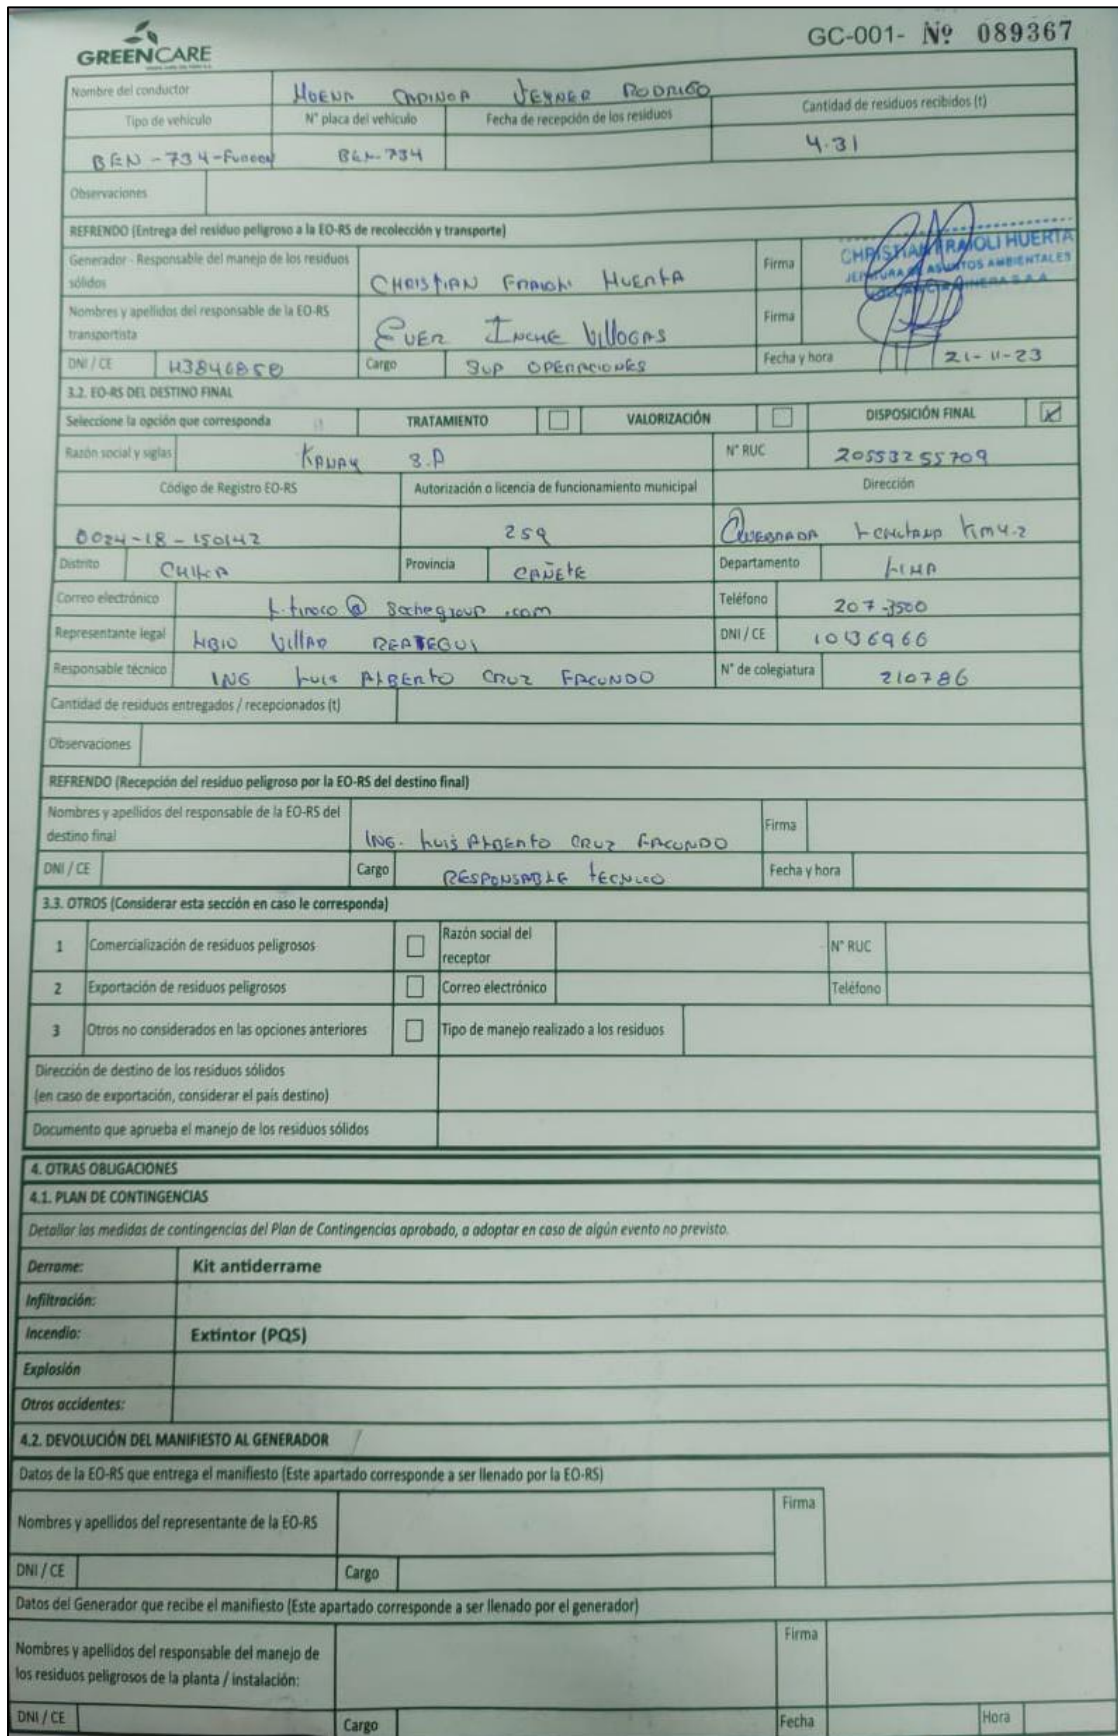 GREENCARE
GC-001- Nº 089367
Nombre del conductor
JEYNER RODRIGO
Tipo de vehículo
N° placa del vehículo
Fecha de recepción de los residuos
Cantidad de residuos recibidos (t)
BEN-734-Furgon
BEN-734
4.31
Observaciones
REFRENDO (Entrega del residuo peligroso a la EO-RS de recolección y transporte)
Generador - Responsable del manejo de los residuos sólidos
CHRISTIAN FRAIOLI HUERTA
Firma
CHRISTIAN FRAIOLI HUERTA
JEFATURA DE ASUNTOS AMBIENTALES
VOLCAN CIA MINERA S.A.A.
Nombres y apellidos del responsable de la EO-RS transportista
EVER INCHE VILLOGAS
Firma
DNI / CE
43846850
Cargo
SUP OPERACIONES
Fecha y hora
21-11-23
3.2. EO-RS DEL DESTINO FINAL
Seleccione la opción que corresponda
TRATAMIENTO
VALORIZACIÓN
DISPOSICIÓN FINAL
Razón social y siglas
KANAY S.A
N° RUC
20553255709
Código de Registro EO-RS
Autorización o licencia de funcionamiento municipal
Dirección
0024-18-150142
259
QUEBRADA CHUTANA Km 4.2
Distrito
CHILCA
Provincia
CAÑETE
Departamento
LIMA
Correo electrónico
L.tinoco@sechegroup.com
Teléfono
207-3500
Representante legal
VILLAR REATEGUI
DNI / CE
10136966
Responsable técnico
ING LUIS ALBERTO CRUZ FACUNDO
N° de colegiatura
210786
Cantidad de residuos entregados / recepcionados (t)
Observaciones
REFRENDO (Recepción del residuo peligroso por la EO-RS del destino final)
Nombres y apellidos del responsable de la EO-RS del destino final
ING. LUIS ALBERTO CRUZ FACUNDO
Firma
DNI / CE
Cargo
RESPONSABLE TECNICO
Fecha y hora
3.3. OTROS (Considerar esta sección en caso le corresponda)
1
Comercialización de residuos peligrosos
Razón social del receptor
N° RUC
2
Exportación de residuos peligrosos
Correo electrónico
Teléfono
3
Otros no considerados en las opciones anteriores
Tipo de manejo realizado a los residuos
Dirección de destino de los residuos sólidos
(en caso de exportación, considerar el país destino)
Documento que aprueba el manejo de los residuos sólidos
4. OTRAS OBLIGACIONES
4.1. PLAN DE CONTINGENCIAS
Detallar las medidas de contingencias del Plan de Contingencias aprobado, a adoptar en caso de algún evento no previsto.
Derrame:
Kit antiderrame
Infiltración:
Incendio:
Extintor (PQS)
Explosión
Otros accidentes:
4.2. DEVOLUCIÓN DEL MANIFIESTO AL GENERADOR
Datos de la EO-RS que entrega el manifiesto (Este apartado corresponde a ser llenado por la EO-RS)
Nombres y apellidos del representante de la EO-RS
Firma
DNI / CE
Cargo
Datos del Generador que recibe el manifiesto (Este apartado corresponde a ser llenado por el generador)
Nombres y apellidos del responsable del manejo de
los residuos peligrosos de la planta / instalación:
Firma
DNI / CE
Cargo
Fecha
Hora